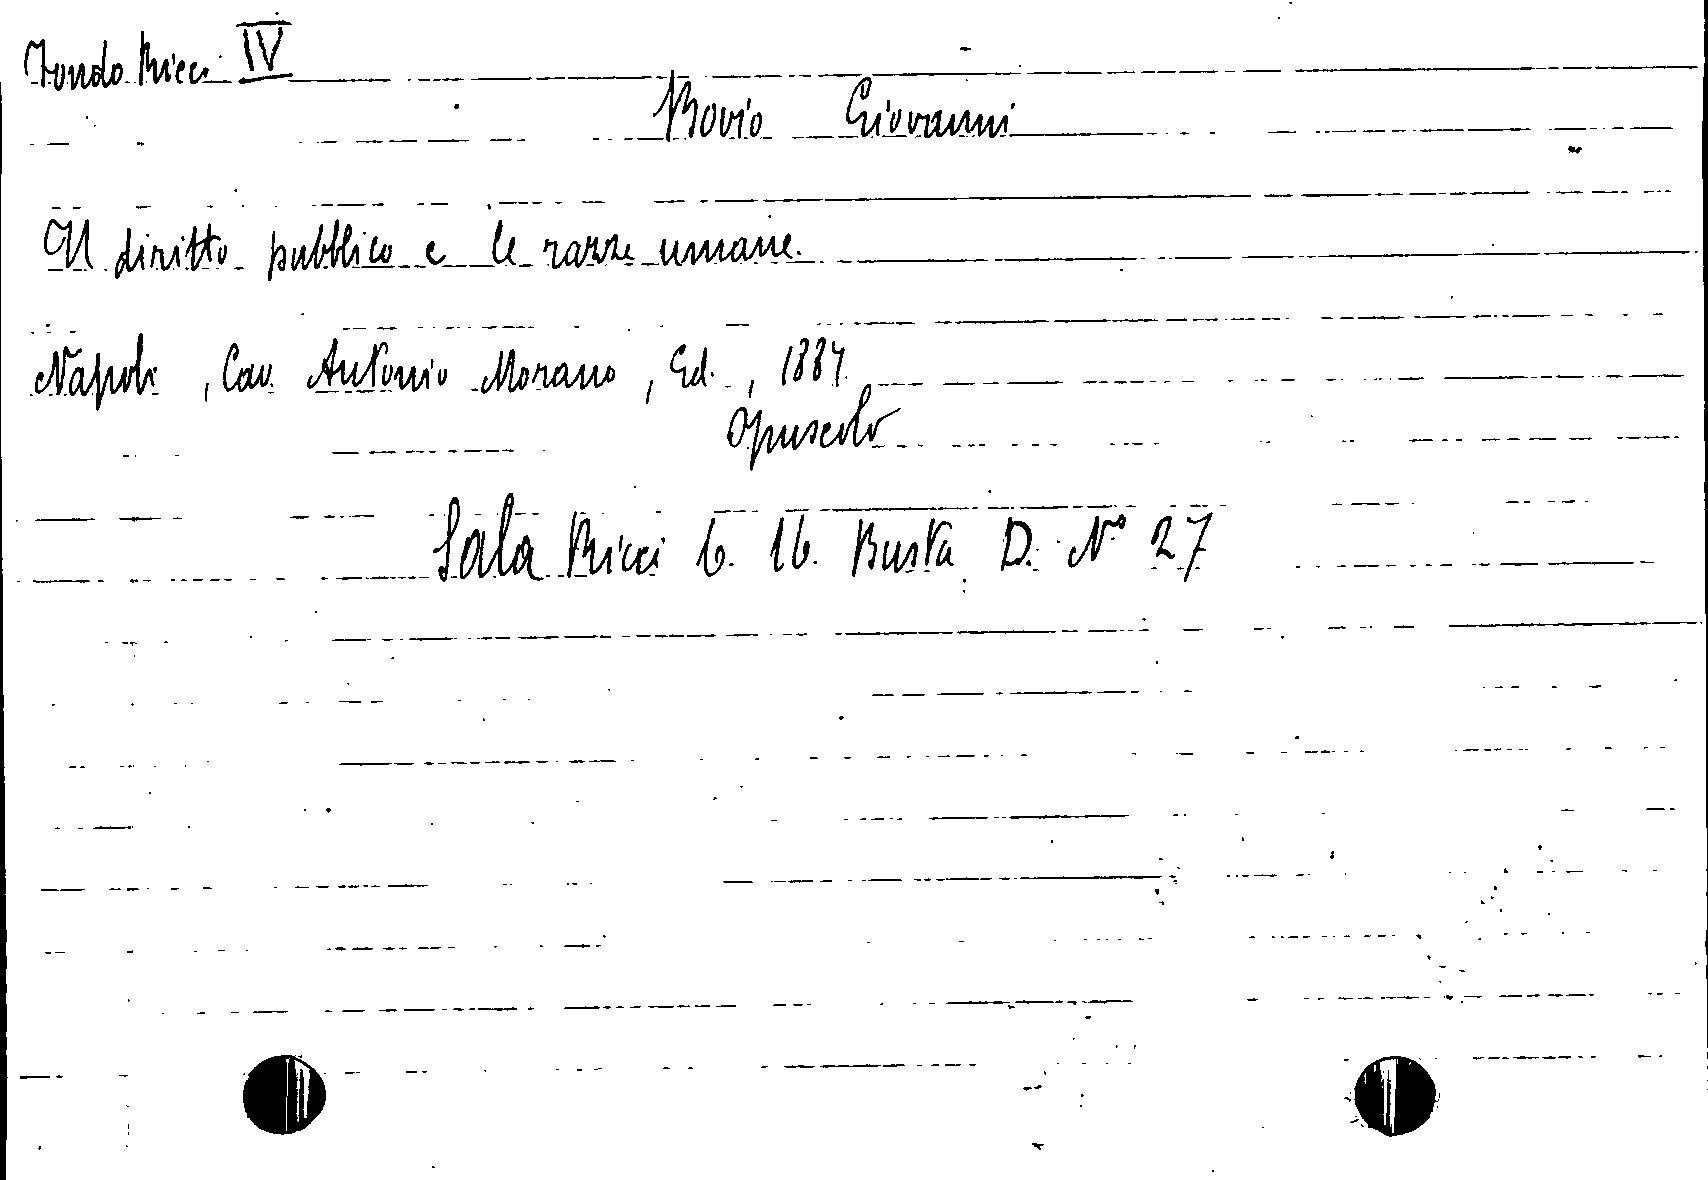 Fondo Ricci IV
Bovio Giovanni
Il diritto pubblico e le razze umane.
Napoli, Cav. Antonio Morano, Ed., 1887
opuscolo
Sala Ricci 6. 16. Busta D. N° 27